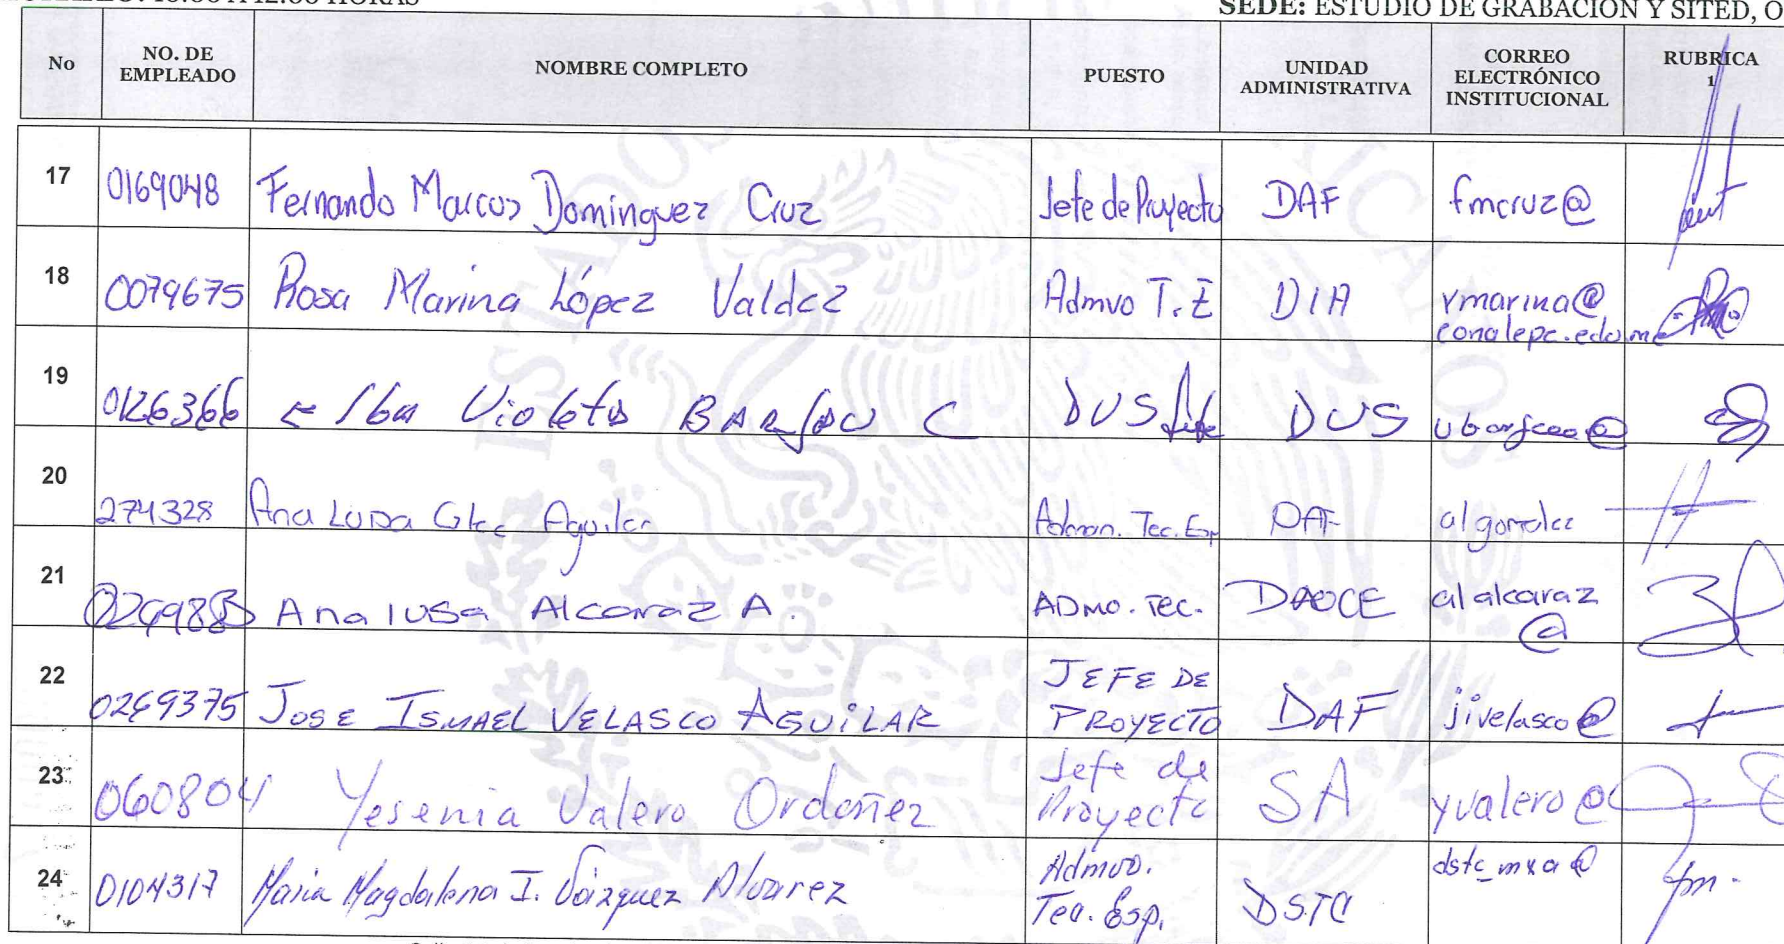 10:00 A 12:00 HORAS
SEDE: ESTUDIO DE GRABACIÓN Y SITED, O
No NO. DE EMPLEADO NOMBRE COMPLETO PUESTO UNIDAD ADMINISTRATIVA CORREO ELECTRÓNICO INSTITUCIONAL RUBRICA 1
17 0169048 Fernando Marcos Dominguez Cruz Jefe de Proyecto DAF fmcruz@
18 0079675 Rosa Marina López Valdez Admvo T.E DIA rmarina@
conalepc.edo.m
19 0126366 Violeta DUS Jefe DUS
20 274328 Ana Luisa Glez Aguilar Admon. Tec. Esp DAF algonzalez
21 Ana luisa Alcaraz A. ADMO. Tec. DAOCE alalcaraz
@
22 0269375 JOSE ISMAEL VELASCO AGUiLAR JEFE DE
PROYECTO DAF jivelasco@
23 060804 Yesenia Valero Ordoñez Jefe de
Proyecto SA yvalero@
24 0104317 Maria Magdalena I. Vázquez Alvarez Admvo.
Tec. Esp. DSTC dstc_mxa@
ESTADOS UNIDOS MEXICANOS